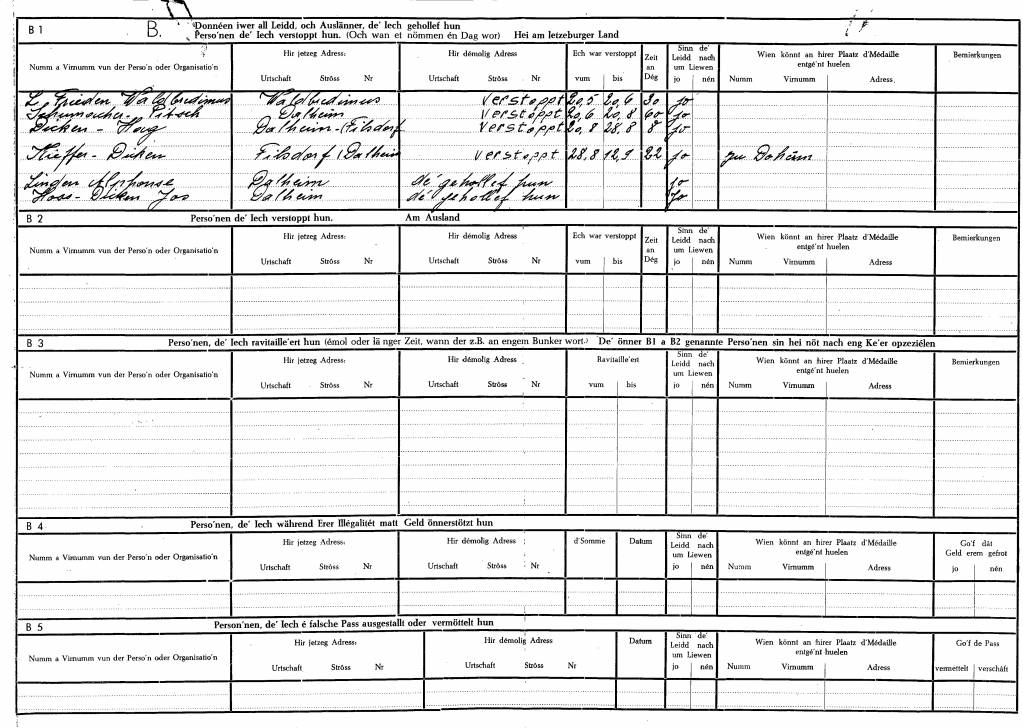 B 1 B. Donnéen iwer all Leidd, och Auslänner, de' Iech gehollef hun
Perso'nen de' Iech verstoppt hun. (Och wan et nömmen én Dag wor) Hei am letzeburger Land
Numm a Virnumm vun der Perso'n oder Organisatio'n Hir jetzeg Adress: Hir démolig Adress Ech war verstoppt Zeit an Dég Sinn de' Leidd nach um Liewen Wien könnt an hirer Plaatz d'Médaille entgé'nt huelen Bemierkungen
Urtschaft Ströss Nr Urtschaft Ströss Nr vum bis jo nén Numm Virnumm Adress
L. Frieden Waldbredimus Waldbredimus Verstoppt 20,5 20,6 30 jo
Schumacher - Pitsch Dalheim Verstoppt 20,6 20,8 60 jo
Dicken - Hoig Dalheim - (Filsdorf Verstoppt 20,8 28,8 8 jo
Kieffer - Dicken Filsdorf (Dalheim Verstoppt 28,8 12,9 22 jo zu Dohäm
Linden Alphonse Dalheim dé gehollef hun jo
Hoss - Dicken Jos Dalheim dé gehollef hun jo
B 2 Perso'nen de' Iech verstoppt hun. Am Ausland
Numm a Virnumm vun der Perso'n oder Organisatio'n Hir jetzeg Adress: Hir démolig Adress Ech war verstoppt Zeit an Dég Sinn de' Leidd nach um Liewen Wien könnt an hirer Plaatz d'Médaille entgé'nt huelen Bemierkungen
Urtschaft Ströss Nr Urtschaft Ströss Nr vum bis jo nén Numm Virnumm Adress
B 3 Perso'nen, de' Iech ravitaille'ert hun (émol oder länger Zeit, wann der z.B. an engem Bunker wort.) De' önner B1 a B2 genannte Perso'nen sin hei nöt nach eng Ke'er opzeziélen
Numm a Virnumm vun der Perso'n oder Organisatio'n Hir jetzeg Adress: Hir démolig Adress Ravitaille'ert Sinn de' Leidd nach um Liewen Wien könnt an hirer Plaatz d'Médaille entgé'nt huelen Bemierkungen
Urtschaft Ströss Nr Urtschaft Ströss Nr vum bis jo nén Numm Virnumm Adress
B 4 Perso'nen, de' Iech während Erer Illégalitét matt Geld önnerstötzt hun
Numm a Virnumm vun der Perso'n oder Organisatio'n Hir jetzeg Adress: Hir démolig Adress d'Somme Datum Sinn de' Leidd nach um Liewen Wien könnt an hirer Plaatz d'Médaille entgé'nt huelen Go'f dât Geld erem gefrot
Urtschaft Ströss Nr Urtschaft Ströss Nr jo nén Numm Virnumm Adress jo nén
B 5 Person'nen, de' Iech é falsche Pass ausgestallt oder vermöttelt hun
Numm a Virnumm vun der Perso'n oder Organisatio'n Hir jetzeg Adress: Hir démolig Adress Datum Sinn de' Leidd nach um Liewen Wien könnt an hirer Plaatz d'Médaille entgé'nt huelen Go'f de Pass
Urtschaft Ströss Nr Urtschaft Ströss Nr jo nén Numm Virnumm Adress vermettelt verschâft